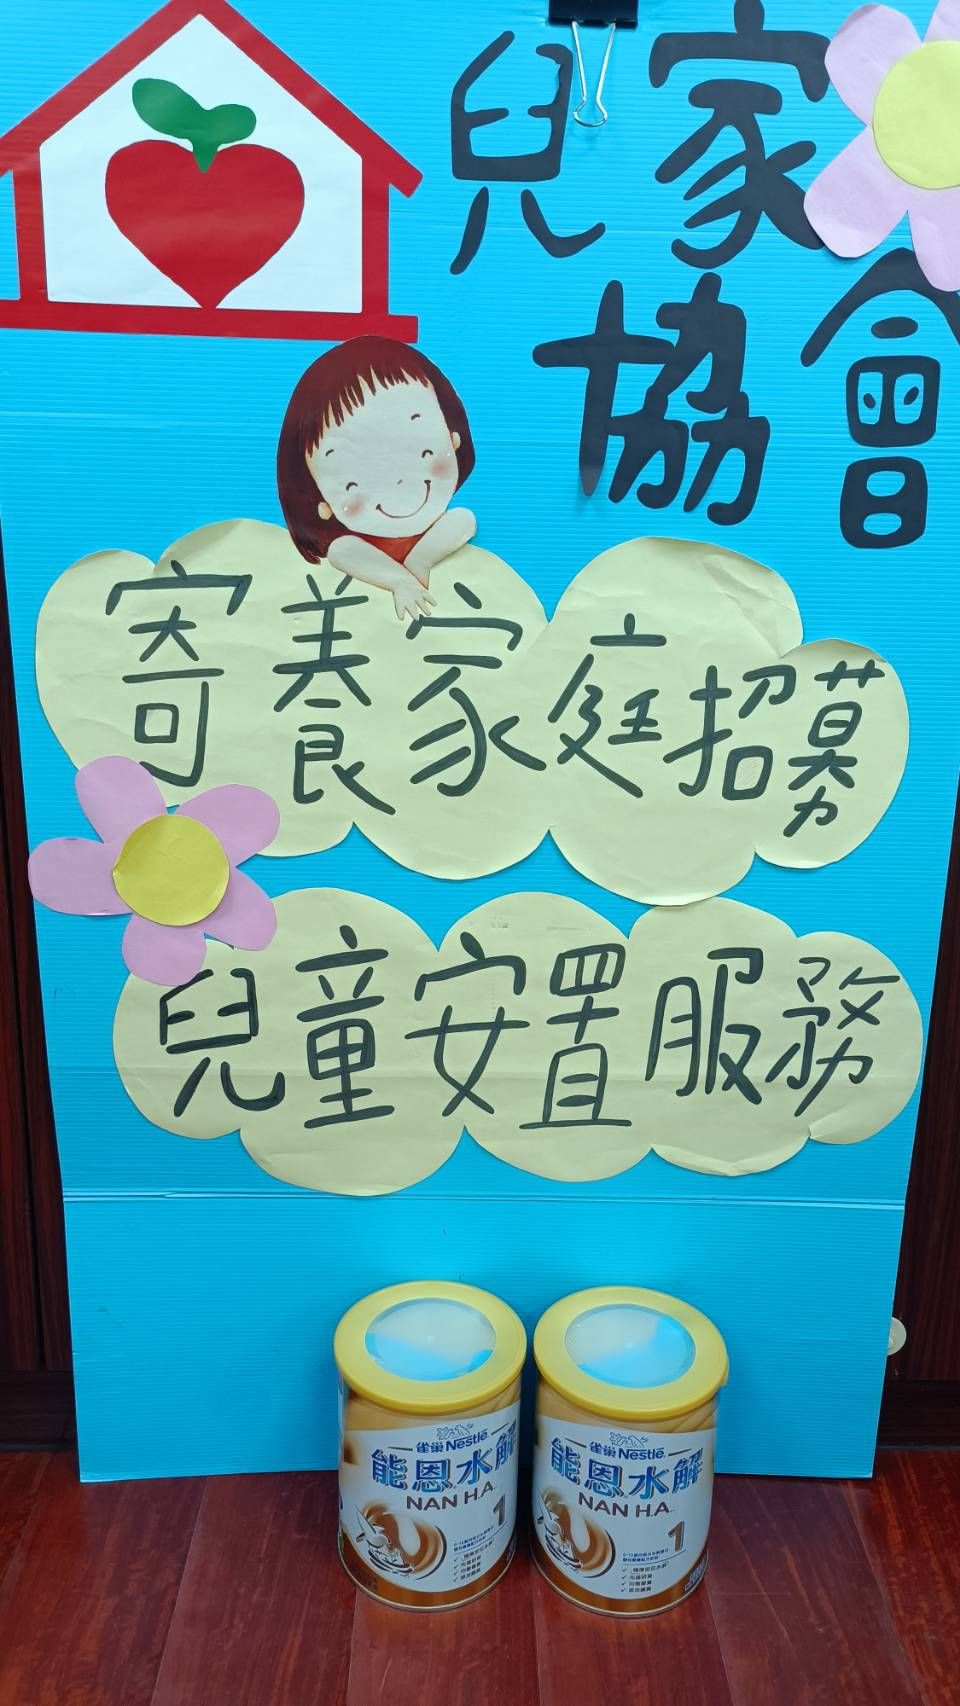 兒家
協會
寄養家庭招募
兒童安置服務
雀巢 Nestlé
能恩水解
NAN H.A.
1
雀巢 Nestlé
能恩水解
NAN H.A.
1